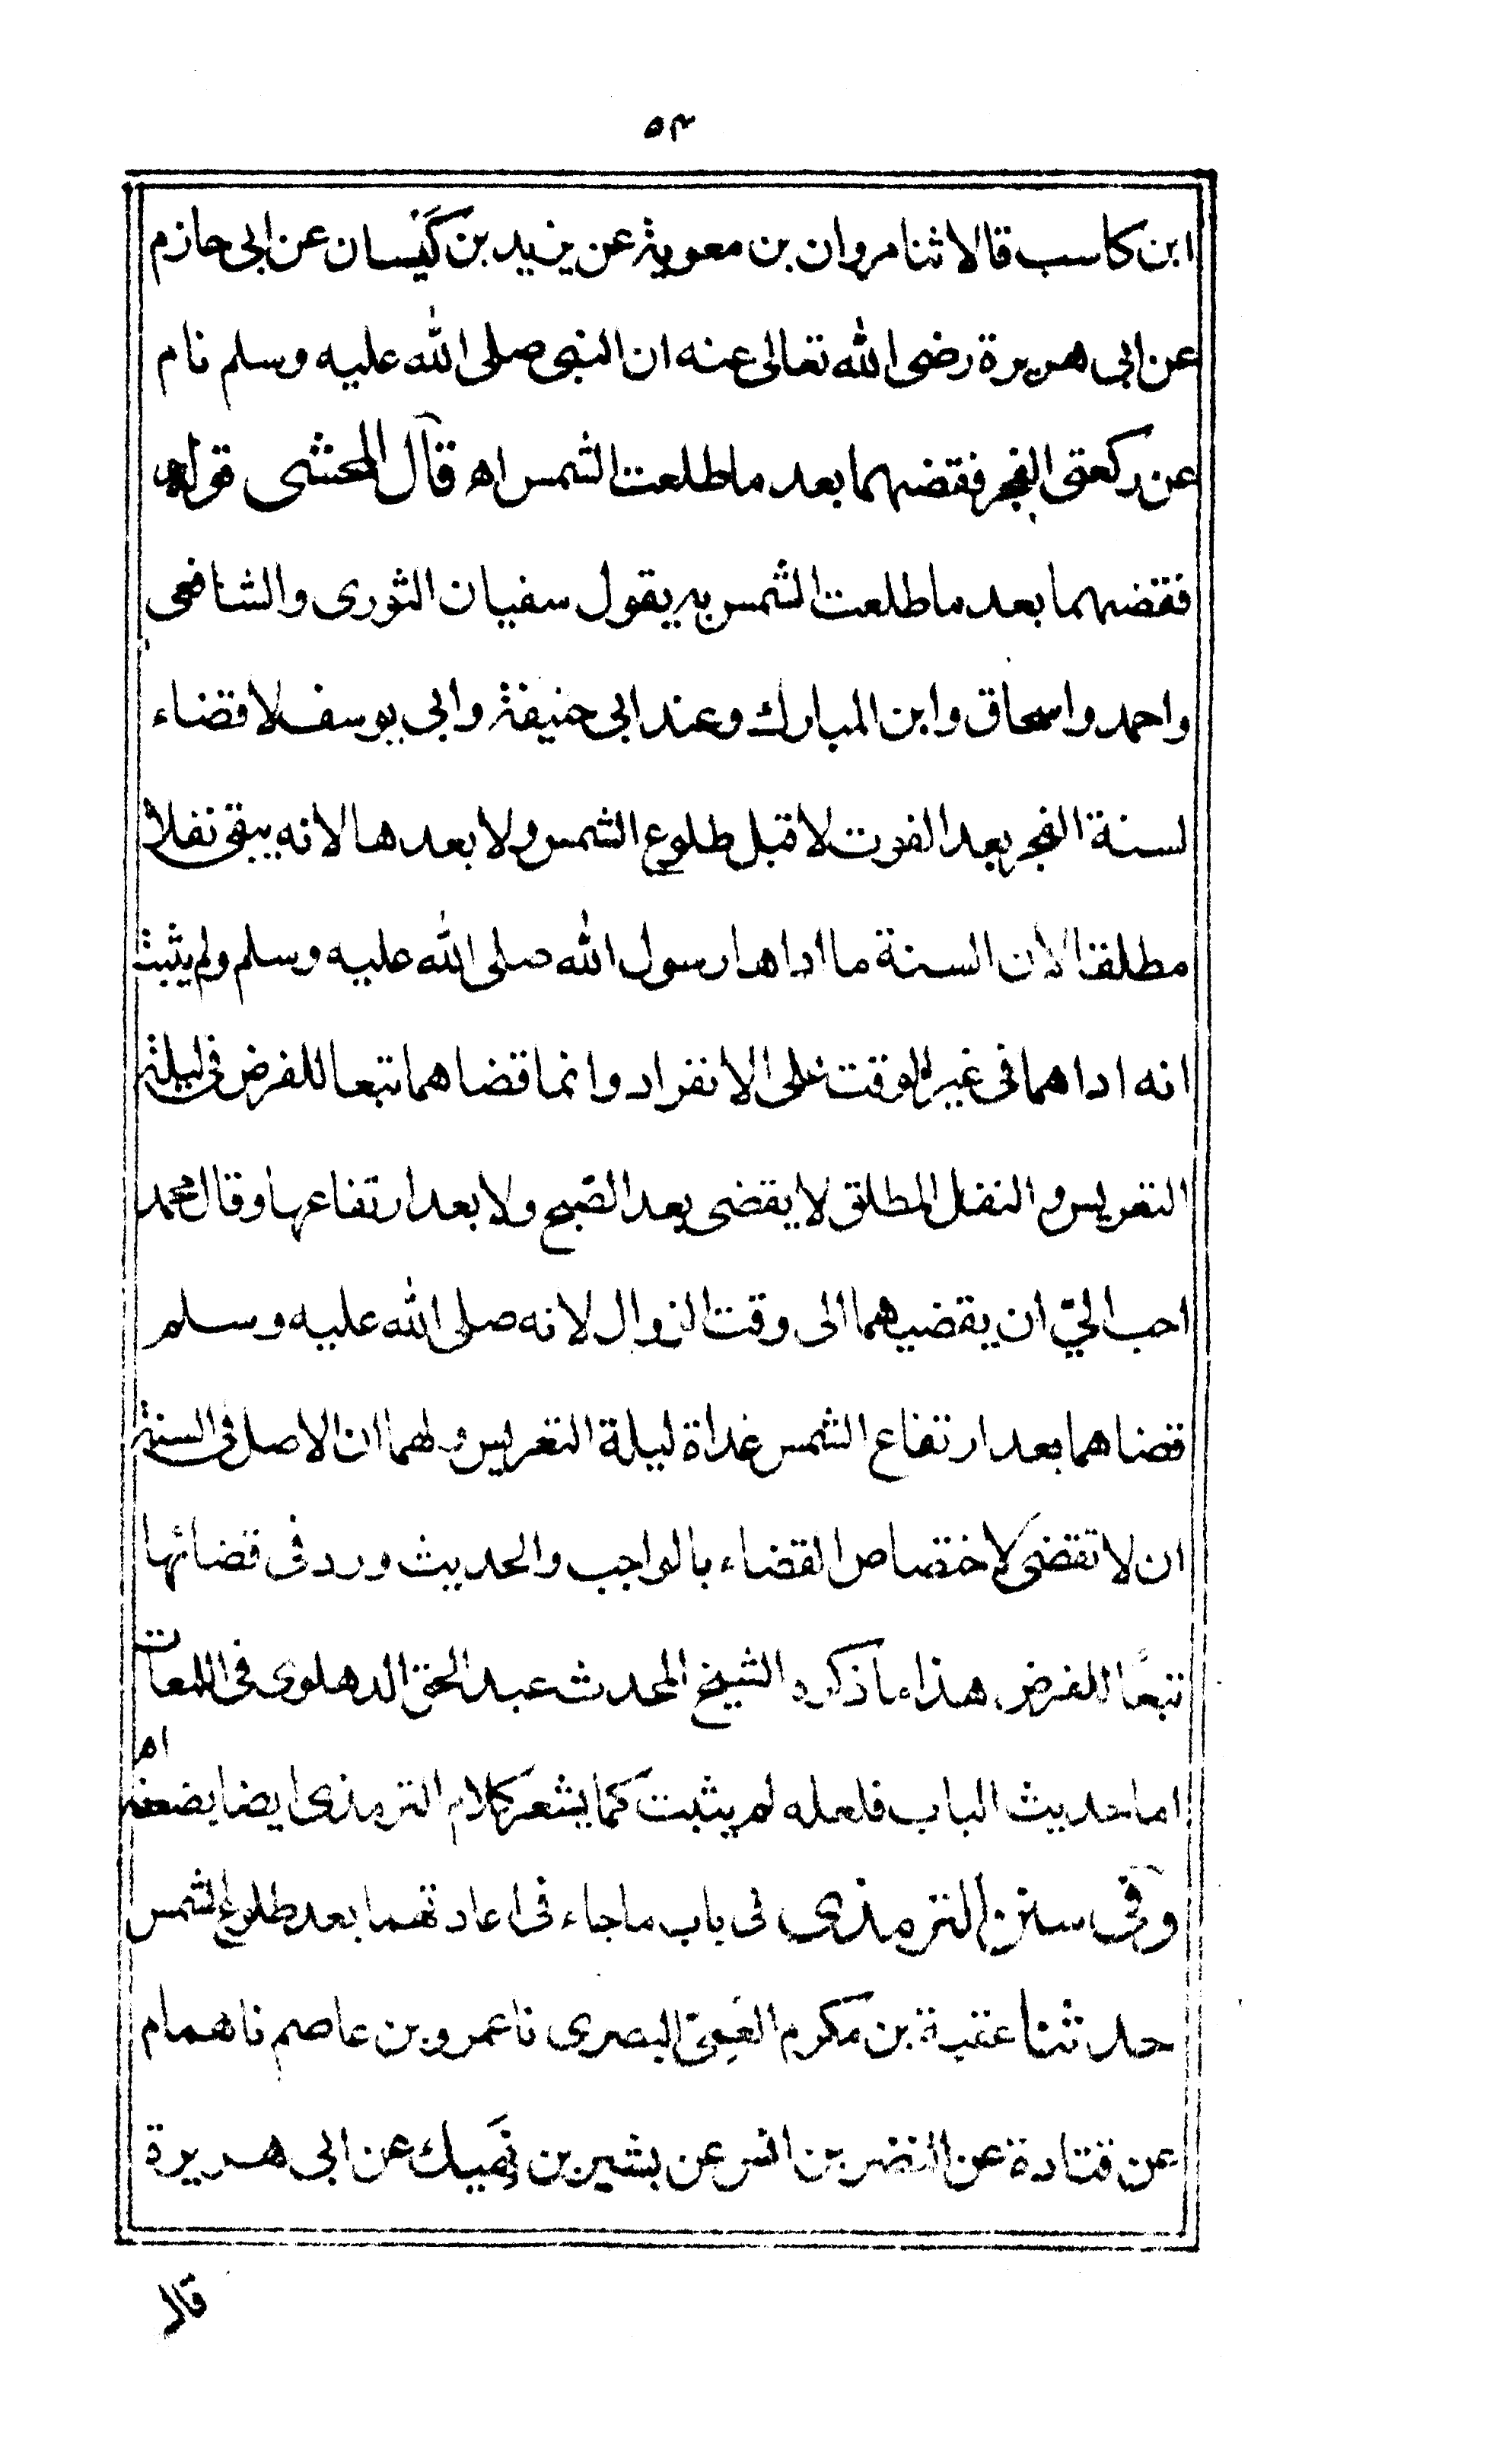 ۵۴
ابن كاسب قالا ثنا مروان بن معوية عن يزيد بن كَيْسان عن ابى حازم
عن ابى هريرة رضى الله تعالى عنه ان النبى صلى الله عليه وسلم نام
عن ركعتى الفجر فقضهما بعد ما طلعت الشمس اه قال المحشى قوله
فقضهما بعد ما طلعت الشمس به يقول سفيان الثورى والشافعى
واحمد واسحاق وابن المبارك وعند ابى حنيفة وابى يوسف لا قضاء
لسنة الفجر بعد الفوت لا قبل طلوع الشمس ولا بعدها لانه يبقى نفلا
مطلقا لان السنة ما اداها رسول الله صلى الله عليه وسلم ولم يثبت
انه اداهما فى غير الوقت على الانفراد وانما قضاهما تبعا للفرض فى ليلة
التعريس والنفل المطلق لا يقضى بعد الصبح ولا بعد ارتفاعها وقال محمد
احب الىّ ان يقضيهما الى وقت الزوال لانه صلى الله عليه وسلم
قضاهما بعد ارتفاع الشمس غداة ليلة التعريس ولهما ان الاصل فى السنة
ان لا تقضى لاختصاص القضاء بالواجب والحديث ورد فى قضائها
تبعًا للفرض هذا ما ذكره الشيخ المحدث عبد الحق الدهلوى فى اللمعات
اه
اما حديث الباب فلعله لم يثبت كما يشعر كلام الترمذى ايضا بضعفه
وفى سنن الترمذى فى باب ما جاء فى اعادتهما بعد طلوع الشمس
حدثنا عقبة بن مكرم العَمِىّ البصرى نا عمرو بن عاصم نا همام
عن قتادة عن النضر بن انس عن بشير بن نَهِيك عن ابى هريرة
قال